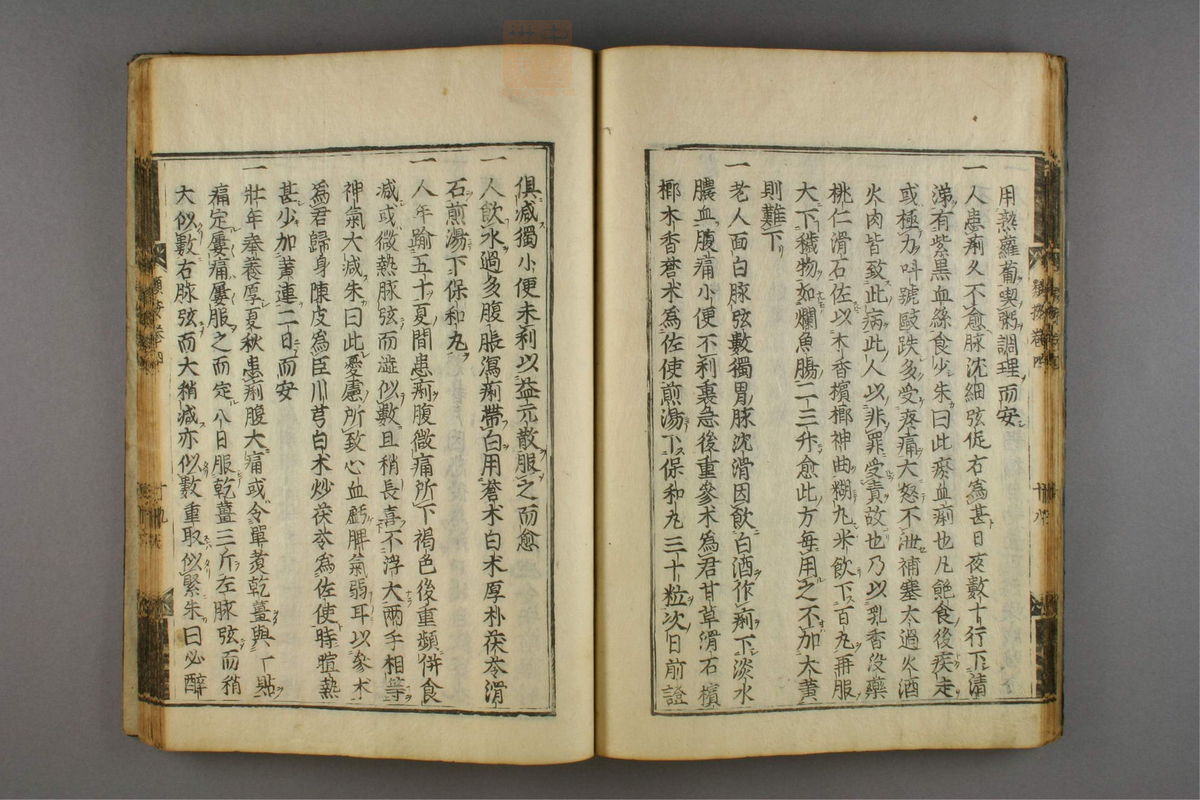 用熟蘿蔔喫粥調理而安
一人患痢久不愈脉沈細弦促右爲甚日夜數十行下清
涕有紫黑血絲食少朱曰此瘀血痢也凡飽食後疾走
或極力呌號毆跌多受疼痛大怒不泄補塞太過火酒
火肉皆致此病此人以非罪受責故也乃以乳香没藥
桃仁滑石佐以木香檳榔神曲糊丸米飲下百丸再服
大下穢物如爛魚腸二三升愈此方毎用之不加大黄
則難下
一老人面白脉弦數獨胃脉沈滑因飲白酒作痢下淡水
膿血腹痛小便不利裏急後重參朮爲君甘草滑石檳
榔木香蒼朮爲佐使煎湯下保和丸三十粒次日前證
俱减獨小便未利以益元散服之而愈
一人飲水過多腹脹瀉痢帶白用蒼朮白朮厚朴茯苓滑
石煎湯下保和丸
一人年踰五十夏間患痢腹微痛所下褐色後重頻併食
减或微熱脉弦而澁似數且稍長喜不浮大兩手相等
神氣大减朱曰此憂慮所致心血虧脾氣弱耳以參朮
爲君歸身陳皮爲臣川芎白朮炒茯苓爲佐使時暄熱
甚少加黄連二日而安
一壯年奉養厚夏秋患痢腹大痛或令單煑乾薑與一貼
痛定屢痛屢服之而定八日服乾薑三斤左脉弦而稍
大似數右脉弦而大稍减亦似數重取似緊朱曰必醉